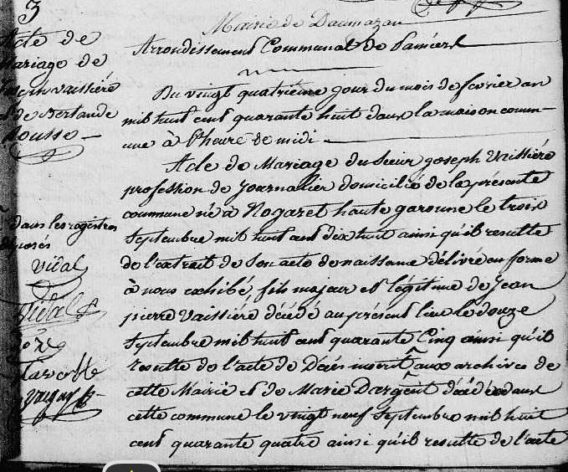 3
Acte de
Mariage de
Vaissiére
et de Bertande
Rousse
dans les registres
Vidal
Vidal
Mairie de Daumazan
Arrondissement Communal de Pamiers
Du vingt quatrième jour du mois de février an
mil huit cent quarante huit dans la maison commu-
une à l'heure de midi
Acte de Mariage du Sieur joseph Vaissiére
profession de Journallier domicilié de la présente
commune né à Nogaret haute garonne le trois
Septembre mil huit cent dix huit ainsi qu'il résulte
de l'extrait de Son acte de naissance délivré en forme
à nous exhibé, fils majeur et légitime de Jean
pierre Vaissiére décédé au présent lieu le douze
Septembre mil huit cent quarante Cinq ainsi qu'il
résulte de l'acte de Décés inscrit aux archives de
cette Mairie et de Marie Dargent décédée dans
cette commune le vingt neuf Septembre mil huit
cent quarante quatre ainsi qu'il résulte de l'acte